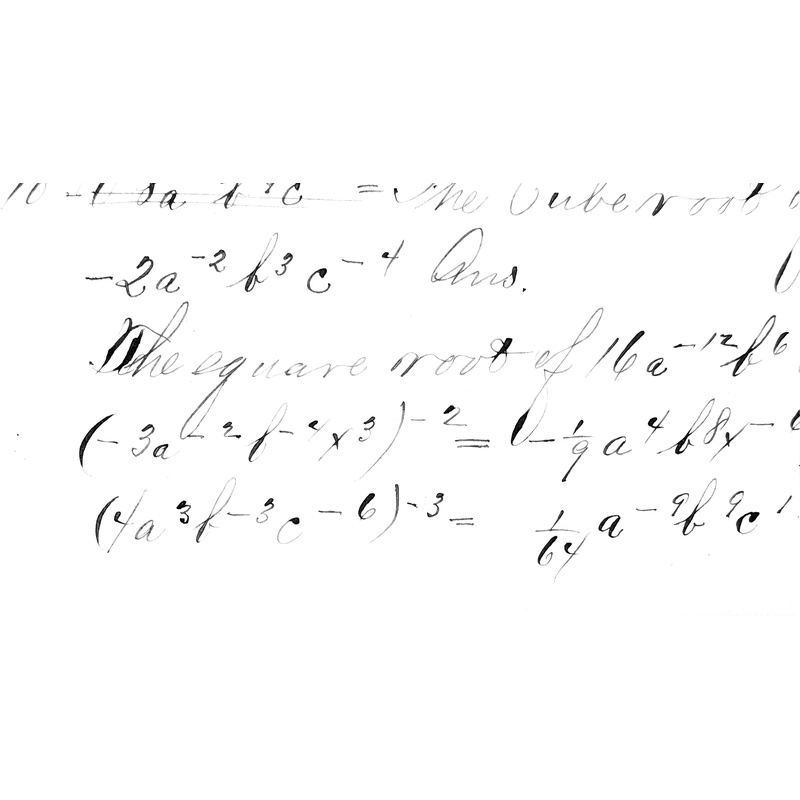 = The Cube root
-2a⁻² b³ c⁻⁴ Ans.
The square root of 16a⁻¹² b⁶
(-3a⁻² b⁻⁴ x³)⁻² = -1/9 a⁴ b⁸ x⁻⁶
(4a³ b⁻³ c⁻⁶)⁻³ = 1/64 a⁻⁹ b⁹ c¹